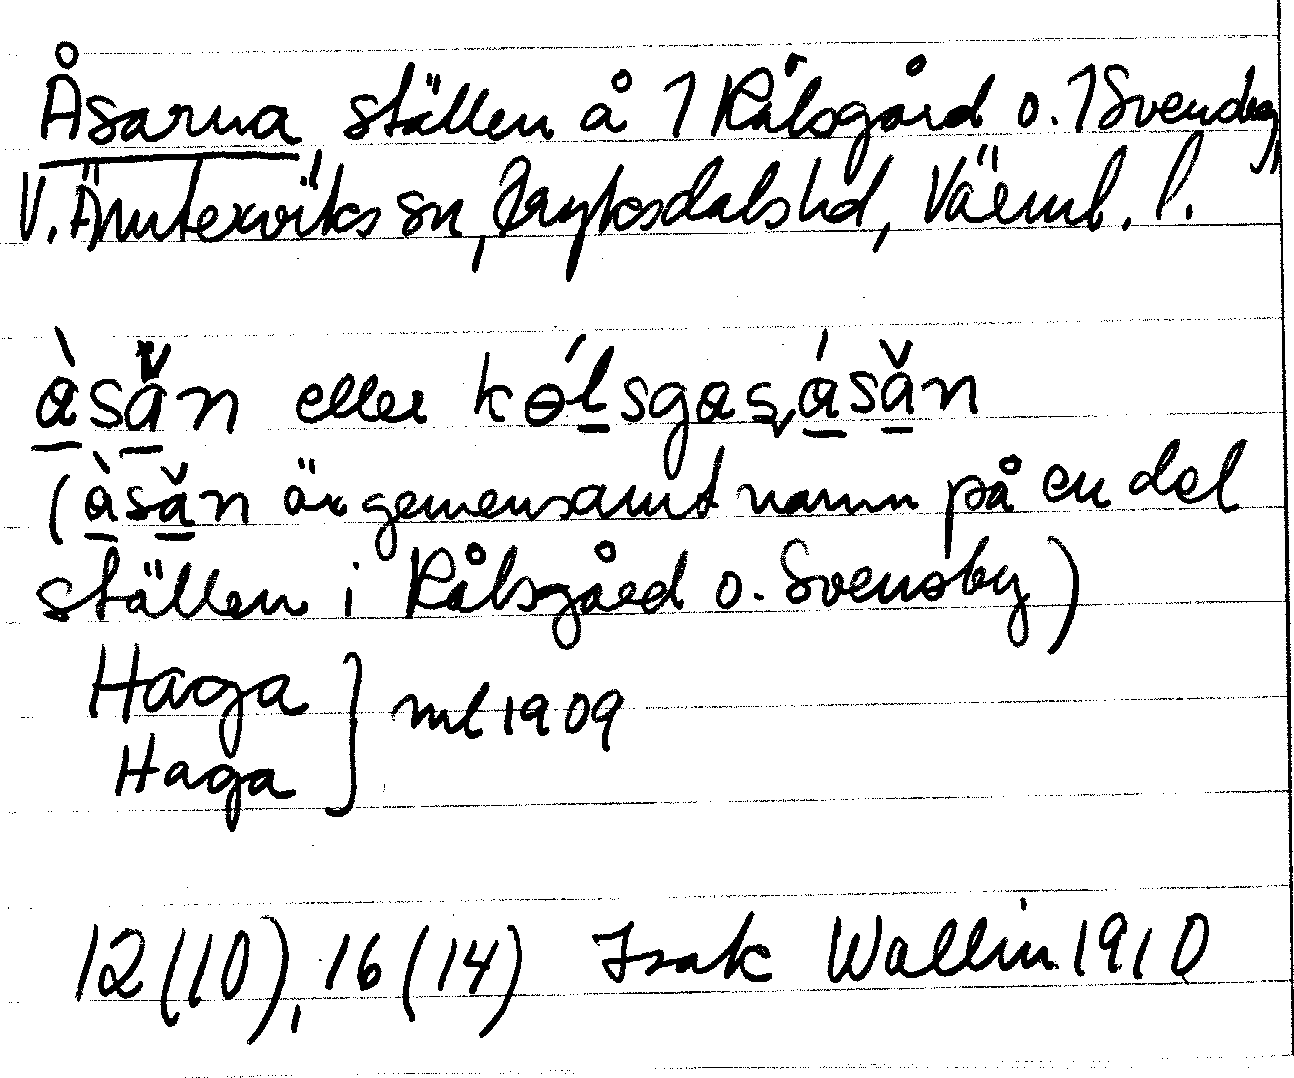 Åsarna, ställen å 1 Rålsgård o. 1 Svensby,
V. Ämterviks sn, Fryksdals hd, Värml. l.
àsăn eller kɵ́lsgas, ásăn
(àsăn är gemensamt namn på en del
ställen i Rålsgård o. Svensby)
Haga } ml 1909
Haga
12(10), 16(14) Isak Wallin 1910